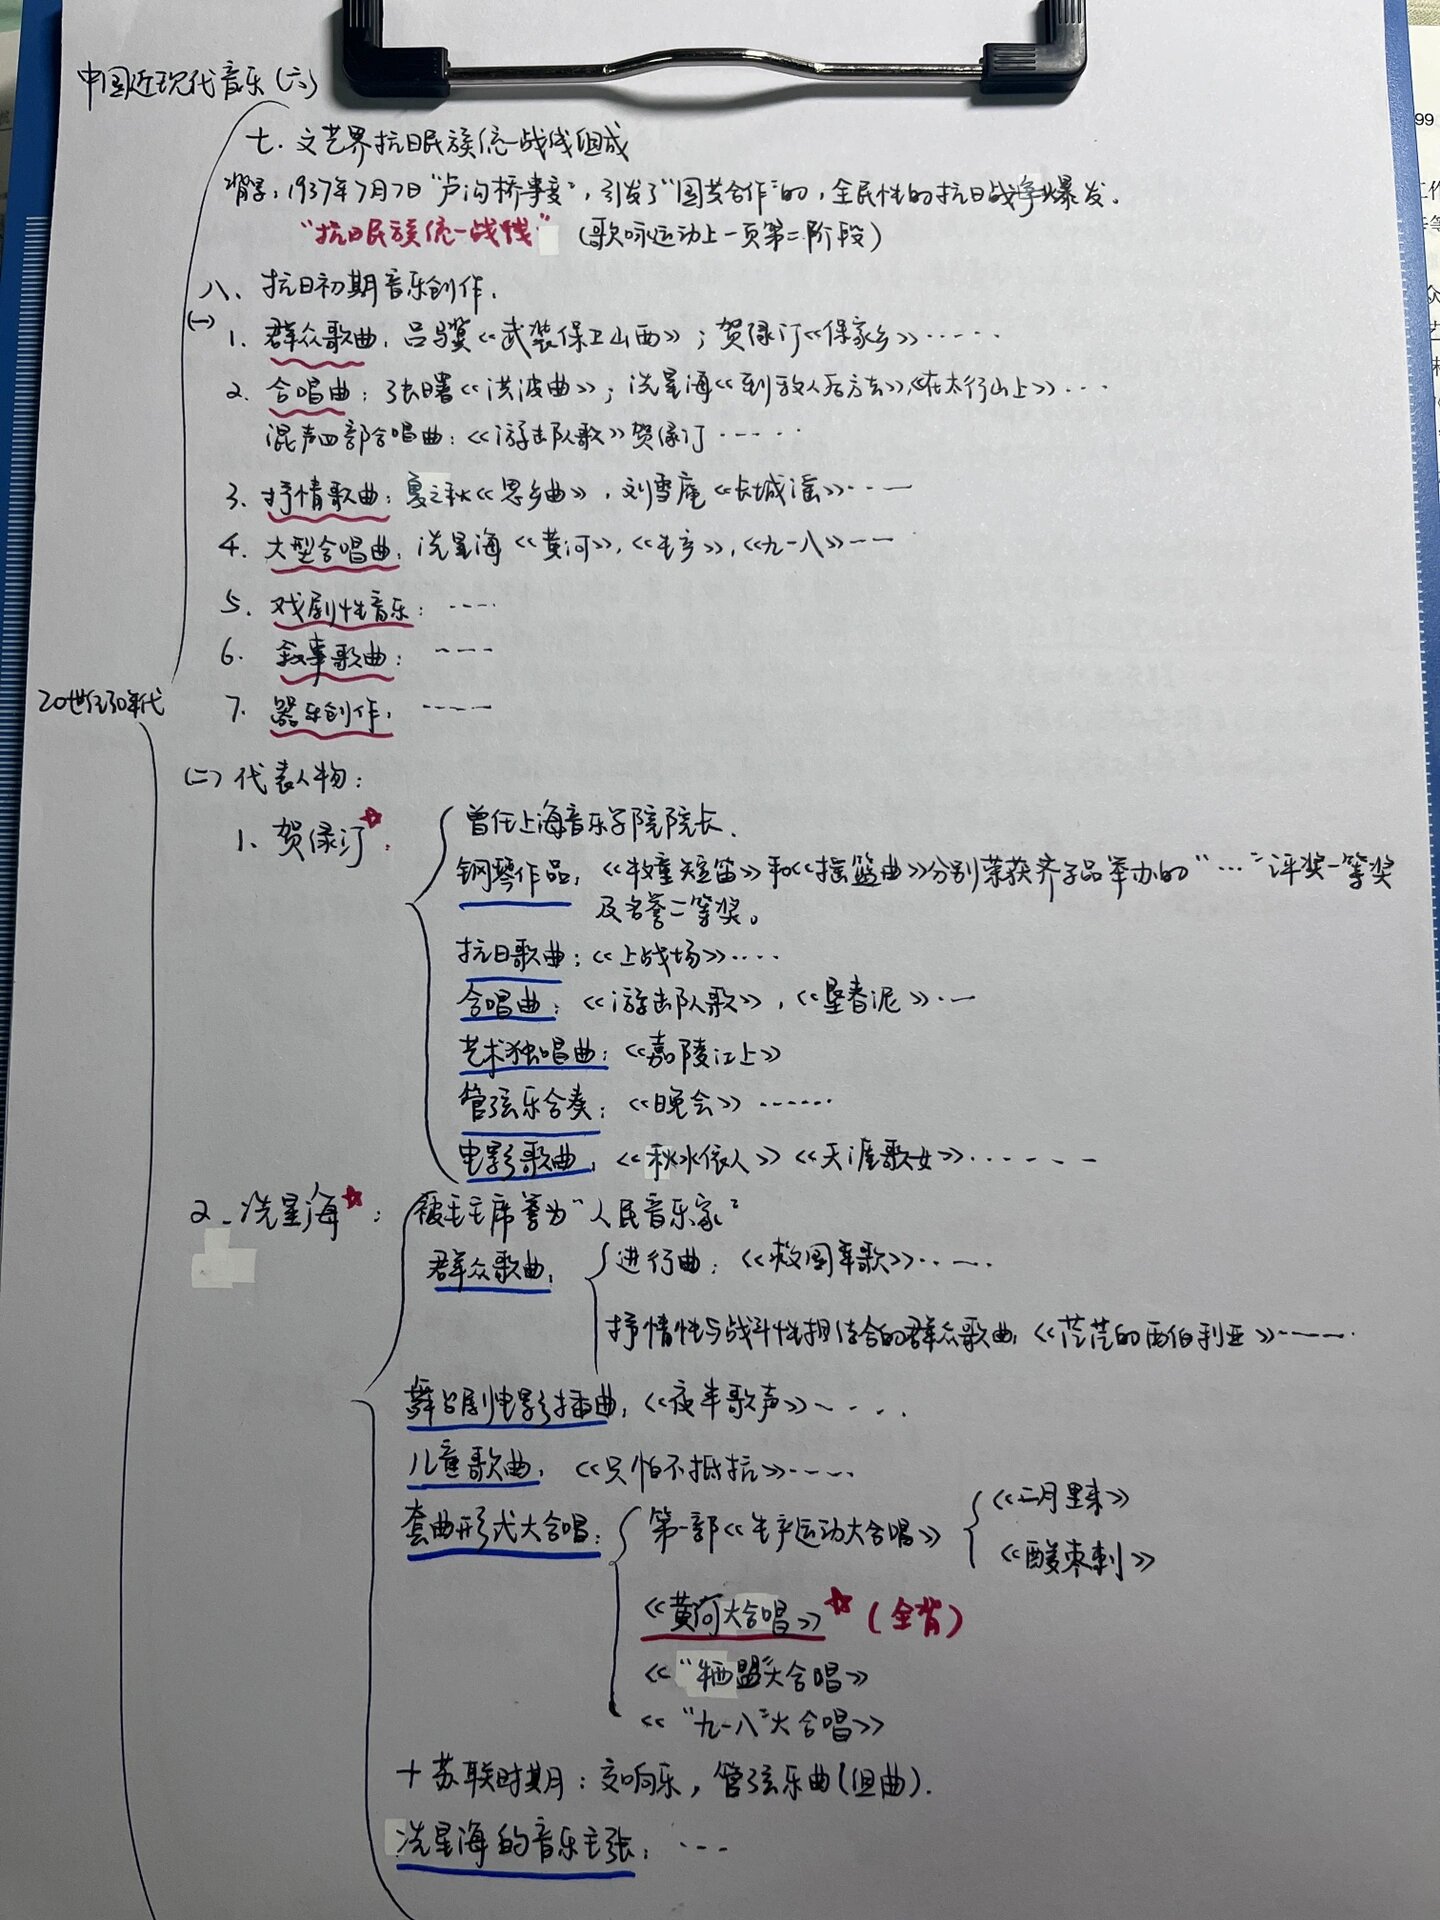 中国近现代音乐(六)
七.文艺界抗日民族统一战线组成
背景:1937年7月7日"卢沟桥事变",引发了"国共合作"的,全民性的抗日战争爆发.
"抗日民族统一战线" (歌咏运动上一页第二阶段)
八、抗日初期音乐创作.
(一)
1. 群众歌曲:吕骥《武装保卫山西》;贺绿汀《保家乡》……
2. 合唱曲:张曙《洪波曲》;冼星海《到敌人后方去》《在太行山上》…
混声四部合唱曲:《游击队歌》贺绿汀……
3. 抒情歌曲:夏之秋《思乡曲》,刘雪庵《长城谣》……
4. 大型合唱曲:冼星海《黄河》,《生产》,《九一八》……
5. 戏剧性音乐:……
6. 叙事歌曲:……
7. 器乐创作:……
20世纪30年代
(二)代表人物:
1、贺绿汀☆:
曾任上海音乐学院院长.
钢琴作品:《牧童短笛》和《摇篮曲》分别荣获齐尔品举办的"…"评奖一等奖
及名誉二等奖。
抗日歌曲:《上战场》……
合唱曲:《游击队歌》,《垦春泥》……
艺术独唱曲:《嘉陵江上》
管弦乐合奏:《晚会》……
电影歌曲:《秋水依人》《天涯歌女》……
2. 冼星海☆:
被毛主席誉为"人民音乐家"
群众歌曲:
进行曲:《救国军歌》……
抒情性与战斗性相结合的群众歌曲:《茫茫的西伯利亚》……
舞台剧电影插曲:《夜半歌声》……
儿童歌曲:《只怕不抵抗》……
套曲形式大合唱:
第一部《生产运动大合唱》
《二月里来》
《酸枣刺》
《黄河大合唱》☆(全背)
《"牺盟"大合唱》
《"九一八"大合唱》
+苏联时期:交响乐,管弦乐曲(组曲).
冼星海的音乐主张:…